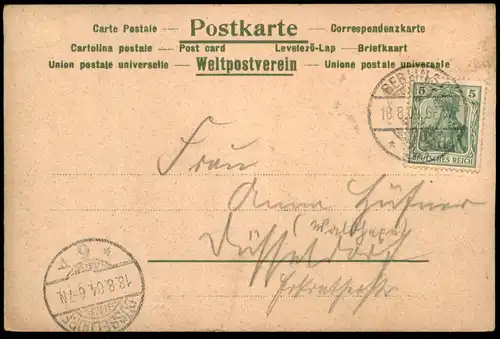 Carte Postale — Postkarte — Correspondenzkarte
Cartolina postale — Post card Levelező-Lap — Briefkaart
Union postale universelle — Weltpostverein — Unione postale universale
5 5
DEUTSCHES REICH
18.8.04.6-
Frau
Anna Hüfner
Düsseldorf
18.8.04.6-7N.